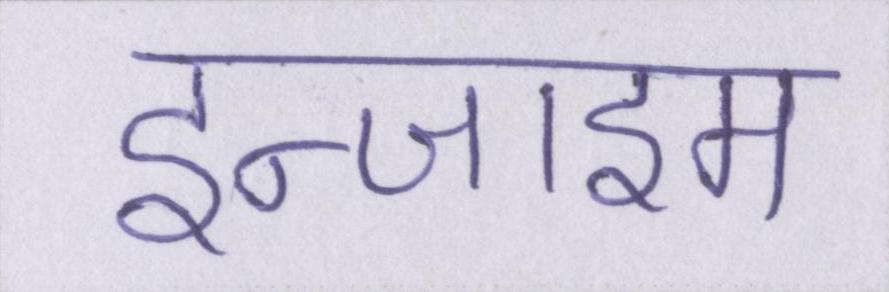 इन्जाइम